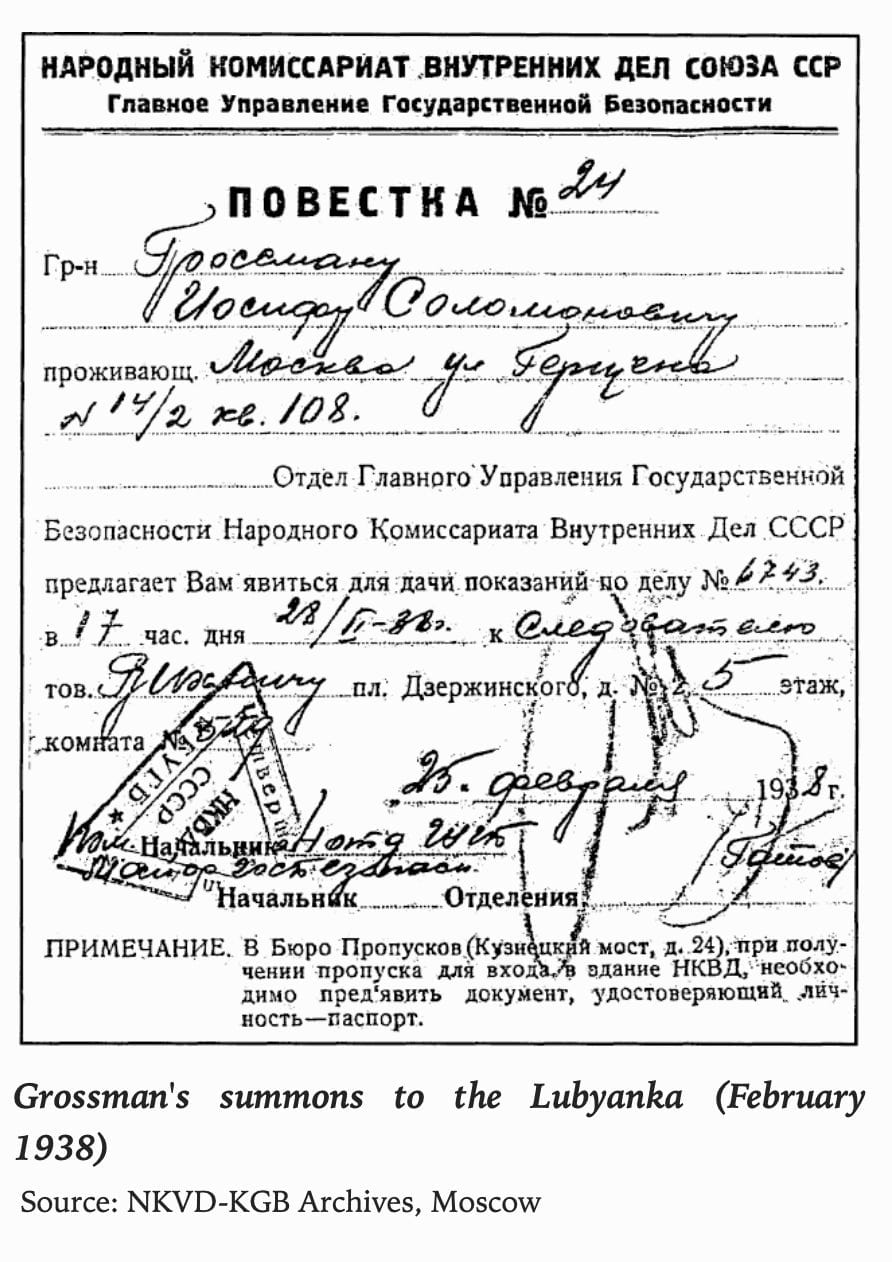 НАРОДНЫЙ КОМИССАРИАТ ВНУТРЕННИХ ДЕЛ СОЮЗА ССР
Главное Управление Государственной Безопасности
ПОВЕСТКА № 24
Гр-н Гроссману
Иосифу Соломоновичу
проживающ. Москва ул Герцена
N 14/2 кв. 108.
Отдел Главного Управления Государственной
Безопасности Народного Комиссариата Внутренних Дел СССР
предлагает Вам явиться для дачи показаний по делу № 6743.
в 17 час. дня 28/II-38г. к Следователю
тов. пл. Дзержинского, д. № 2, 5 этаж,
комната №
25. февраля 1938 г.
Пом. Начальника
Майор Госбезопасн.
Начальник Отделения
ПРИМЕЧАНИЕ. В Бюро Пропусков (Кузнецкий мост, д. 24), при полу-
чении пропуска для входа в здание НКВД, необхо-
димо пред'явить документ, удостоверяющий лич-
ность—паспорт.
ГУГБ
НКВД
СССР
Grossman's summons to the Lubyanka (February
1938)
Source: NKVD-KGB Archives, Moscow